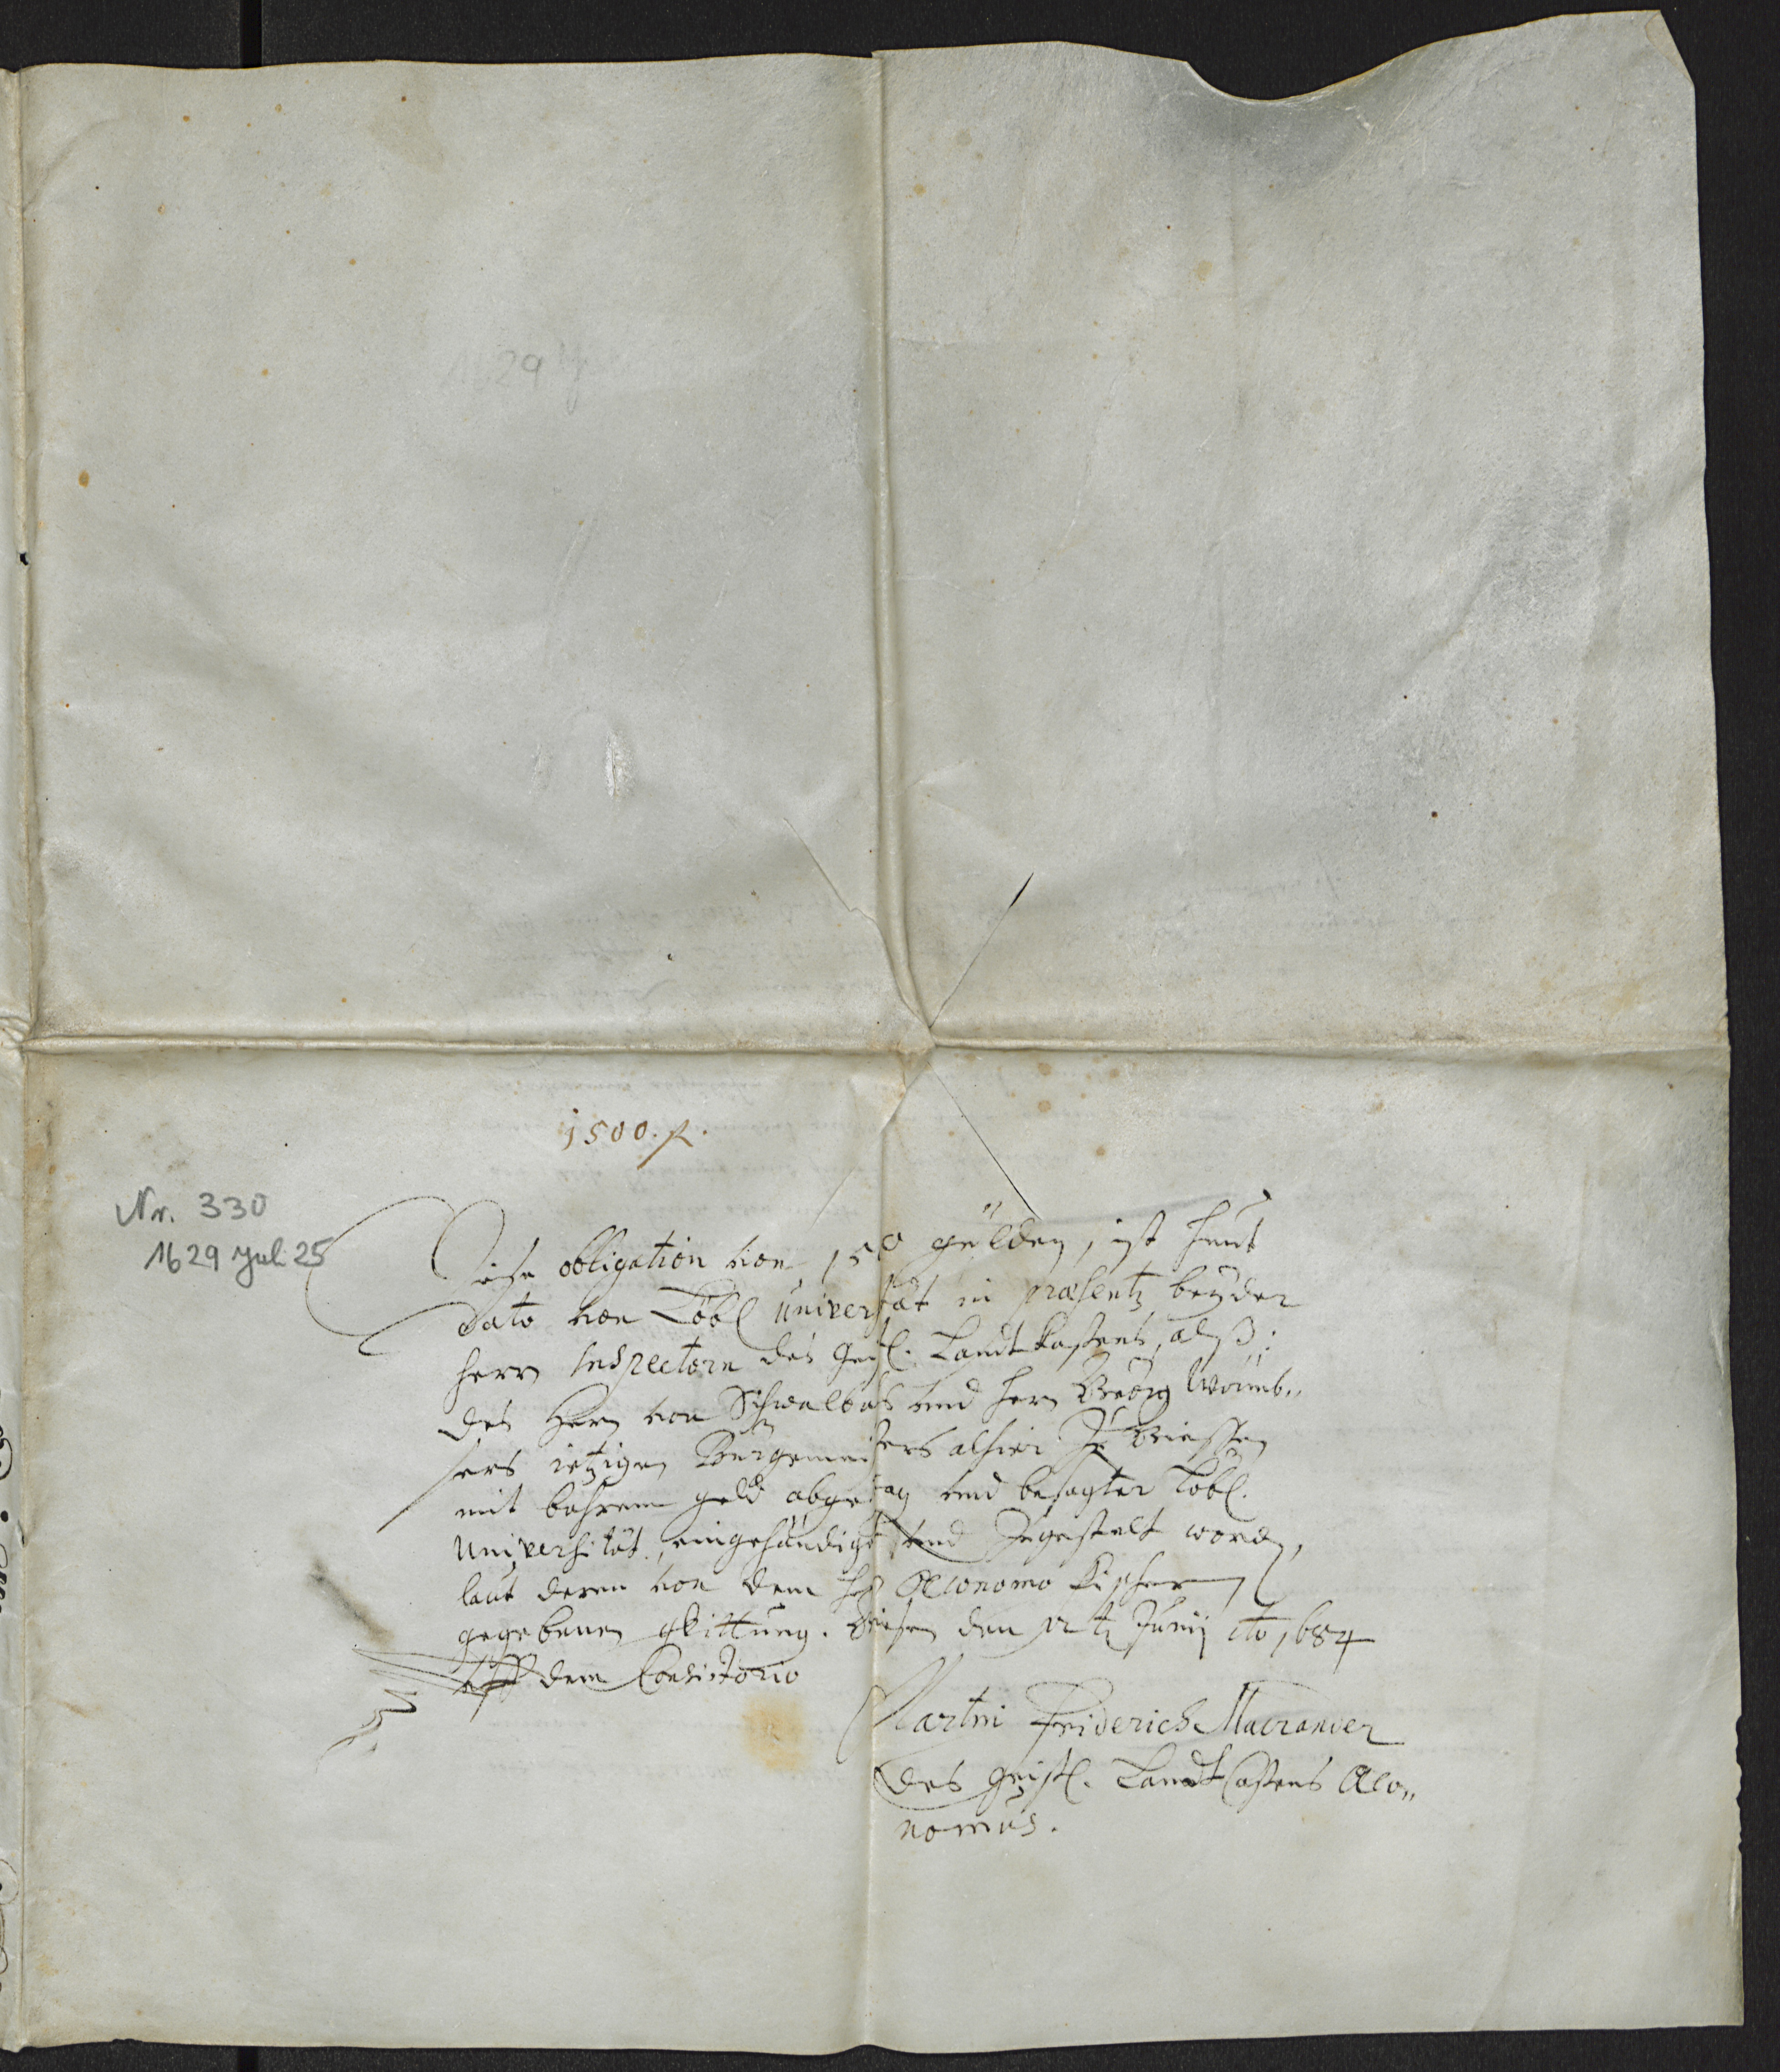 1629 J
1500. fl.
Nr. 330
1629 Juli 25
Diese obligation von 1500 gülden, ist heut
dato von Löbl universität in præsentz beyder
herrn Inspectorn des Geistl. Landt kastens, alß:
des Herrn von Schwalbach und herrn Georg Wormb„
sers ietzigen Burgemeisters alhier zu Giessen
mit bahrem geld abgetragen und besagter Löbl.
Universität, eingehändigt und zugestelt worden,
laut deren von dem hℓ Œconomo Fischern
gegebenen qvittung. Giesen den 12 ten Junij Ao 1684
uff dem Consistorio
Martin Friderich Macrander
des geistl. Landt Castens Œco„
nomus.